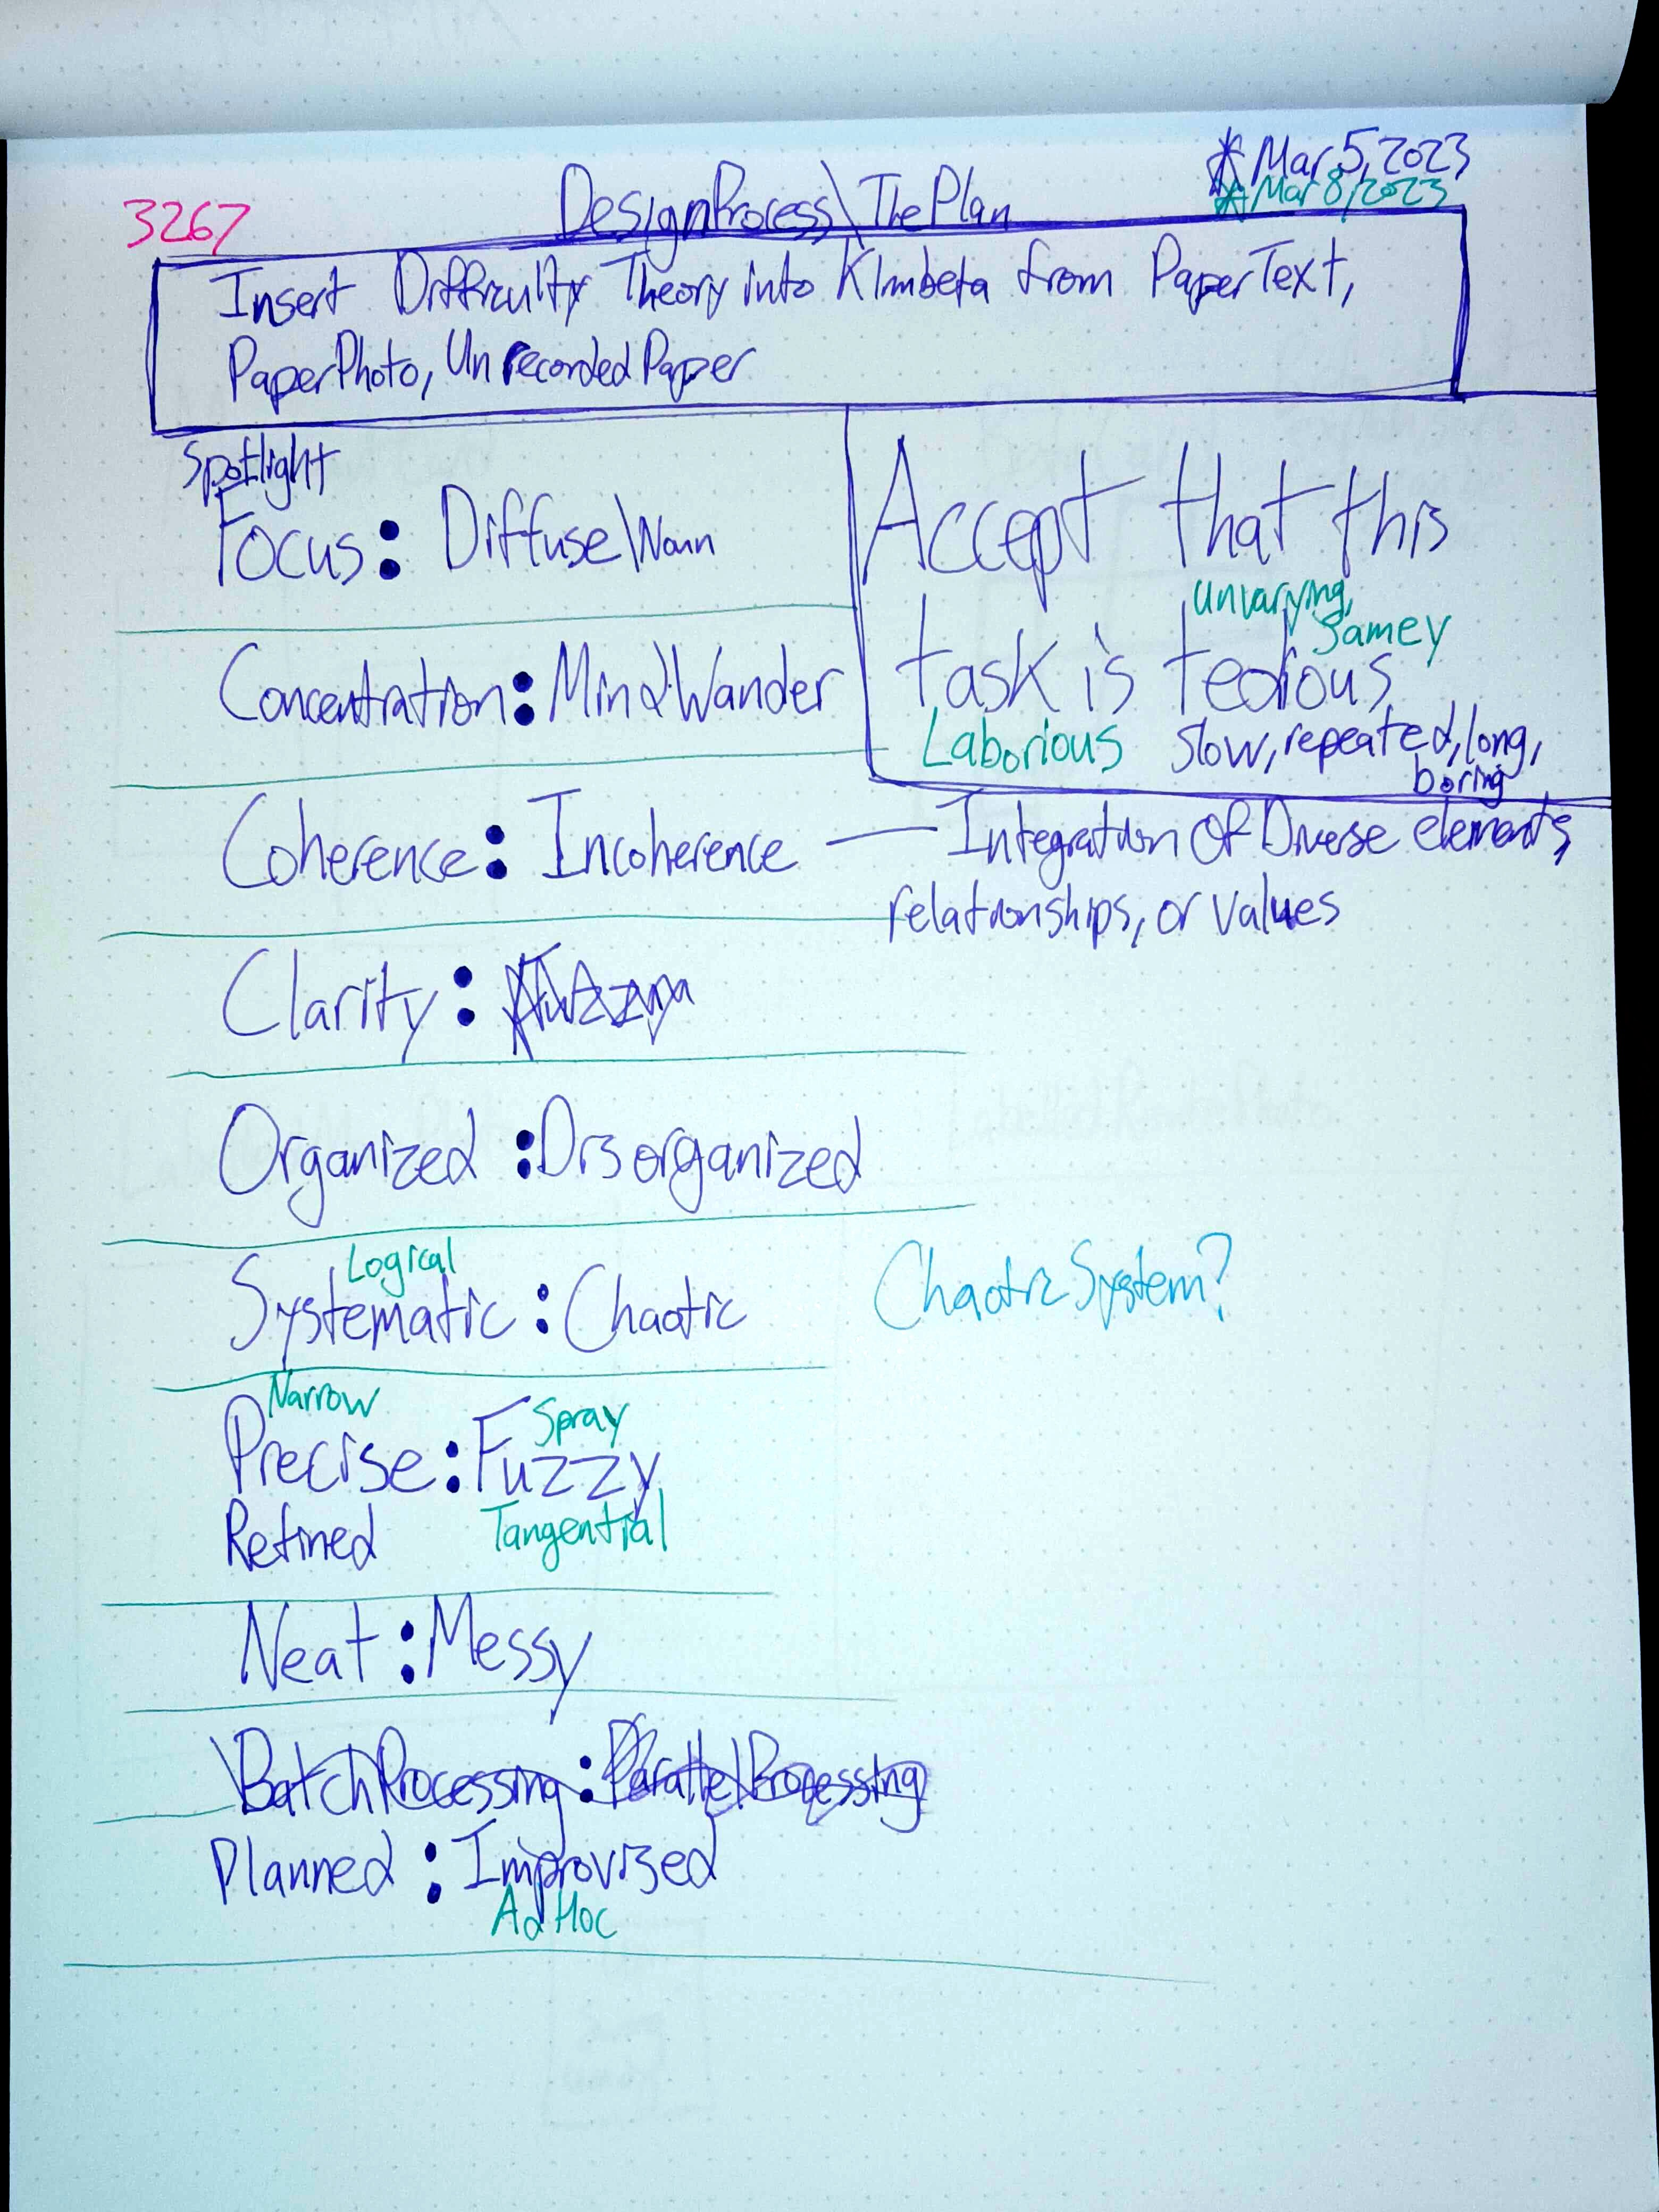 3267
DesignProcess\ThePlan
*Mar 5, 2023
*Mar 8, 2023
Insert Difficulty Theory into Klmbeta from PaperText,
PaperPhoto, UnrecordedPaper
Spotlight
Focus: Diffuse\Noun
Accept that this
unvarying,
samey
task is tedious,
Laborious slow, repeated, long,
boring
Concentration: MindWander
Coherence: Incoherence — Integration Of Diverse elements,
relationships, or values
Clarity: Fuzzy
Organized: Disorganized
Logical
Systematic: Chaotic ChaoticSystem?
Narrow Spray
Precise: Fuzzy
Refined Tangential
Neat: Messy
\BatchProcessing: ParallelProcessing
Planned: Improvised
Ad Hoc